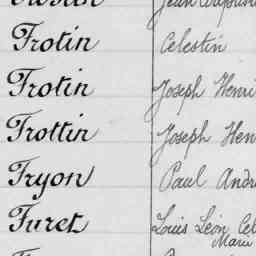 Frotin Celestin
Frotin Joseph Henri
Trottin Joseph Hen
Fryon Paul Andr
Furet Louis Léon Cel
Marie